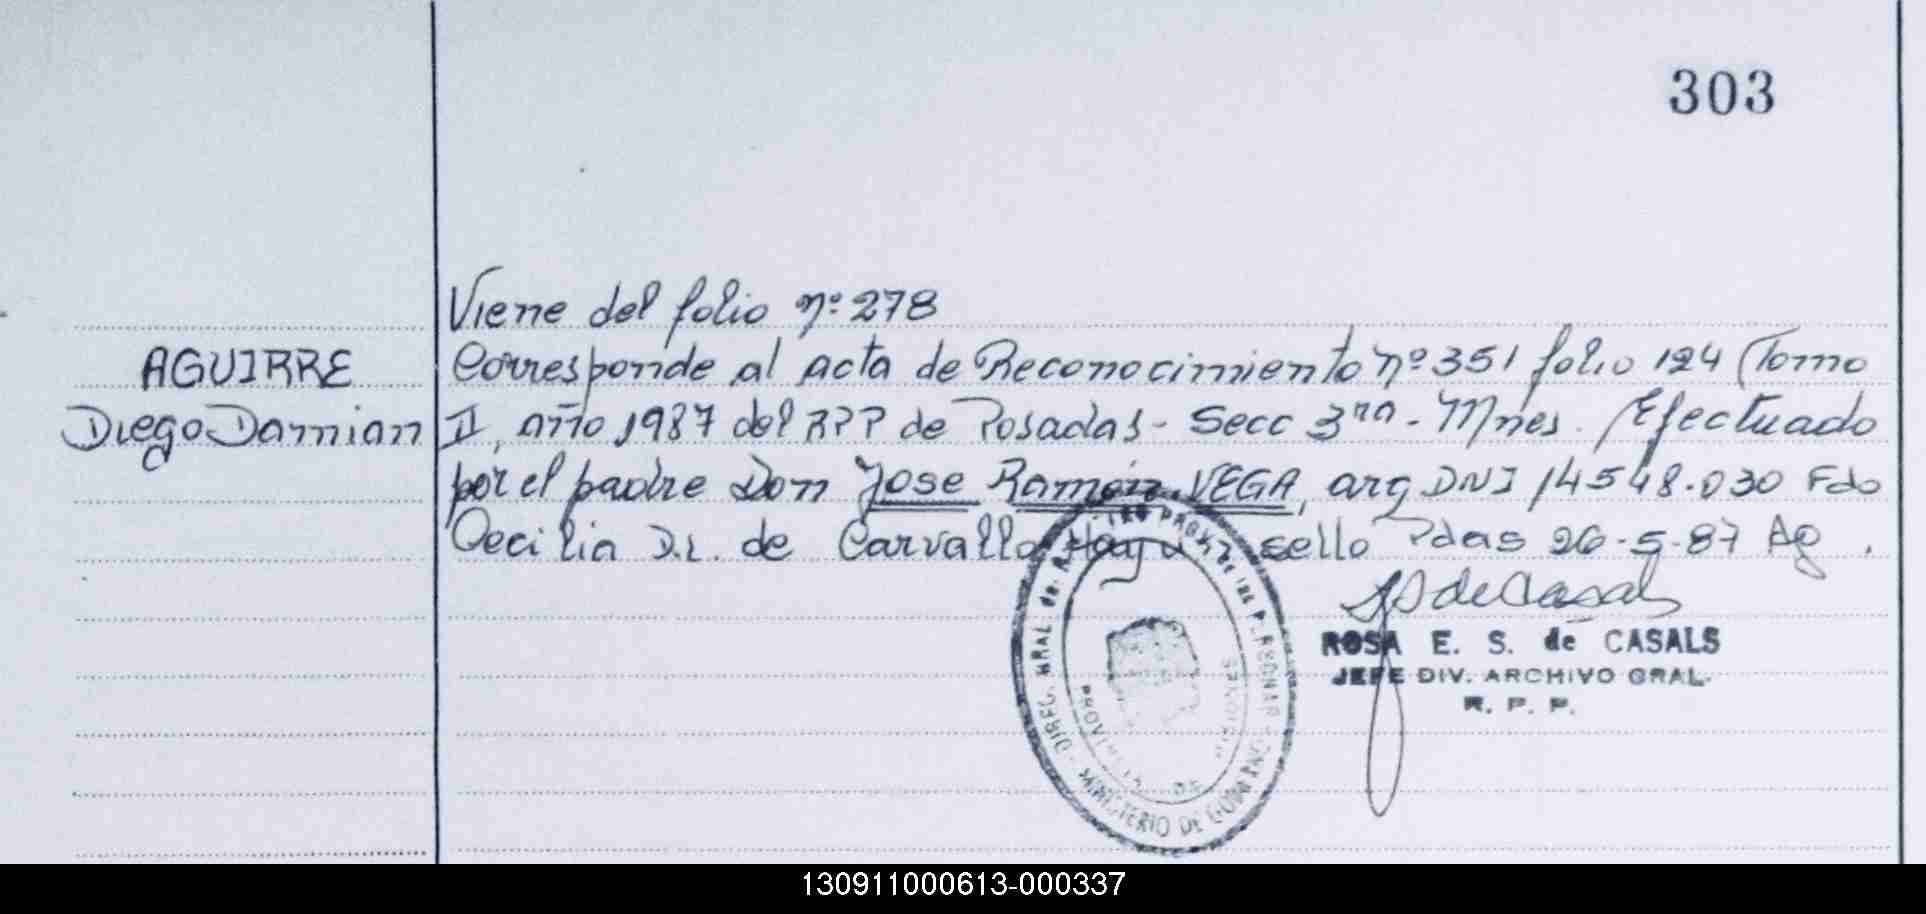 303
Viene del folio nº 278
AGUIRRE
Corresponde al acta de Reconocimiento nº 351 folio 124 (Tomo
Diego Damian
II, año 1987 del RPP de Posadas - Secc 3ra - Mnes. Efectuado
por el padre Don Jose Ramón VEGA, arg DNI 14548.030 Fdo
Cecilia D.L. de Carvallo Hay un sello Pdas 26-5-87 Ag.
ROSA E. S. de CASALS
JEFE DIV. ARCHIVO GRAL.
R. P. P.
DIREC. GRAL. del REGISTRO PROV. DE las PERSONAS
MINISTERIO DE GOBIERNO
PROVINCIA DE MISIONES
130911000613-000337